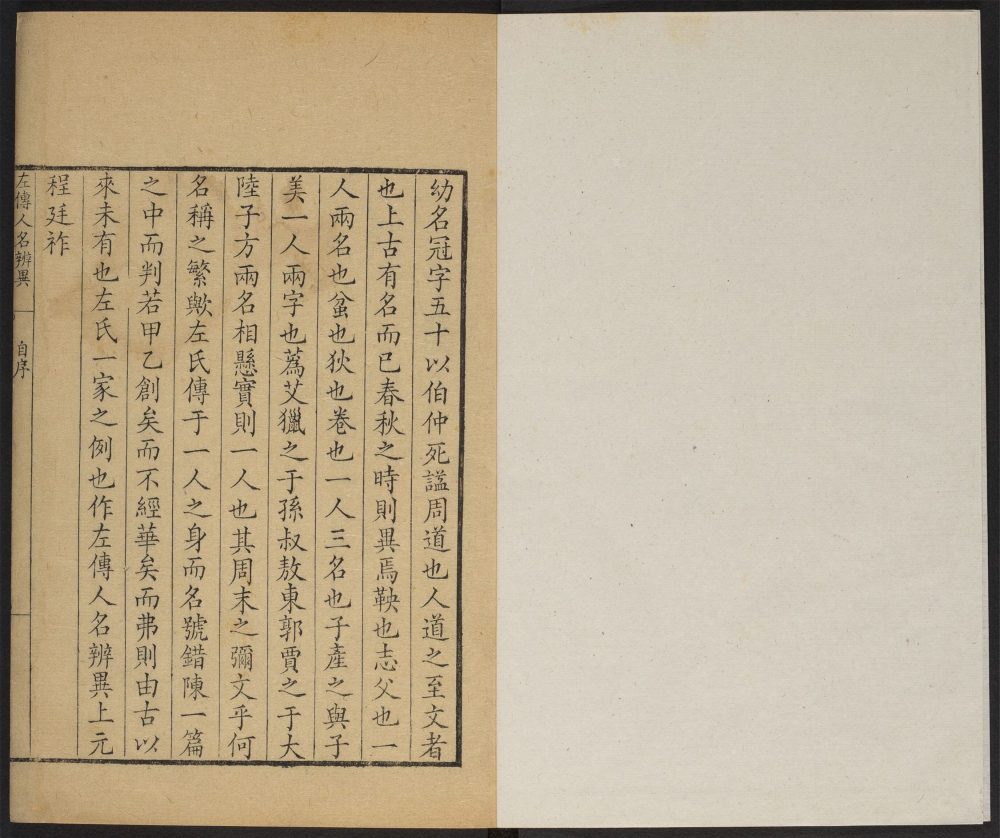 幼名冠字五十以伯仲死諡周道也人道之至文者
也上古有名而已春秋之時則異焉鞅也志父也一
人兩名也蚠也狄也卷也一人三名也子產之與子
美一人兩字也蒍艾獵之于孫叔敖東郭賈之于大
陸子方兩名相懸實則一人也其周末之彌文乎何
名稱之繁歟左氏傳于一人之身而名號錯陳一篇
之中而判若甲乙創矣而不經華矣而弗則由古以
來未有也左氏一家之例也作左傳人名辨異上元
程廷祚
左傳人名辨異 自序